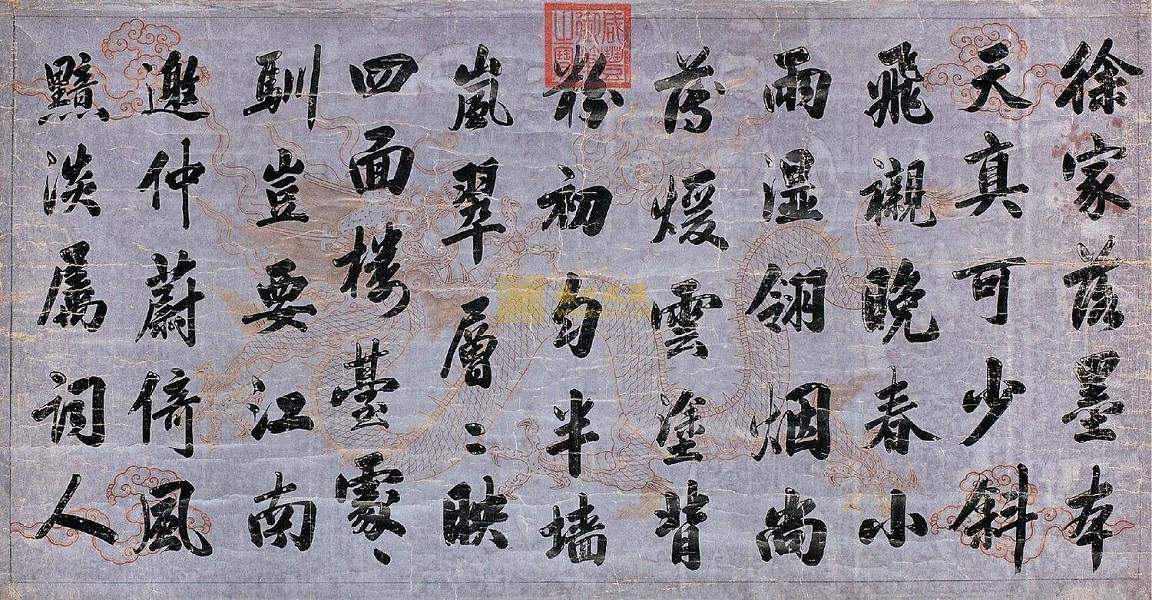 徐家落墨本
天真可少斜
飛襯晚春小
雨湿翎烟尚
薄煖雲塗背
粉初匀半墙
嵐翠層〻映
四面楼臺處〻
馴豈要江南
邀仲蔚倚風
黯淡屬詞人